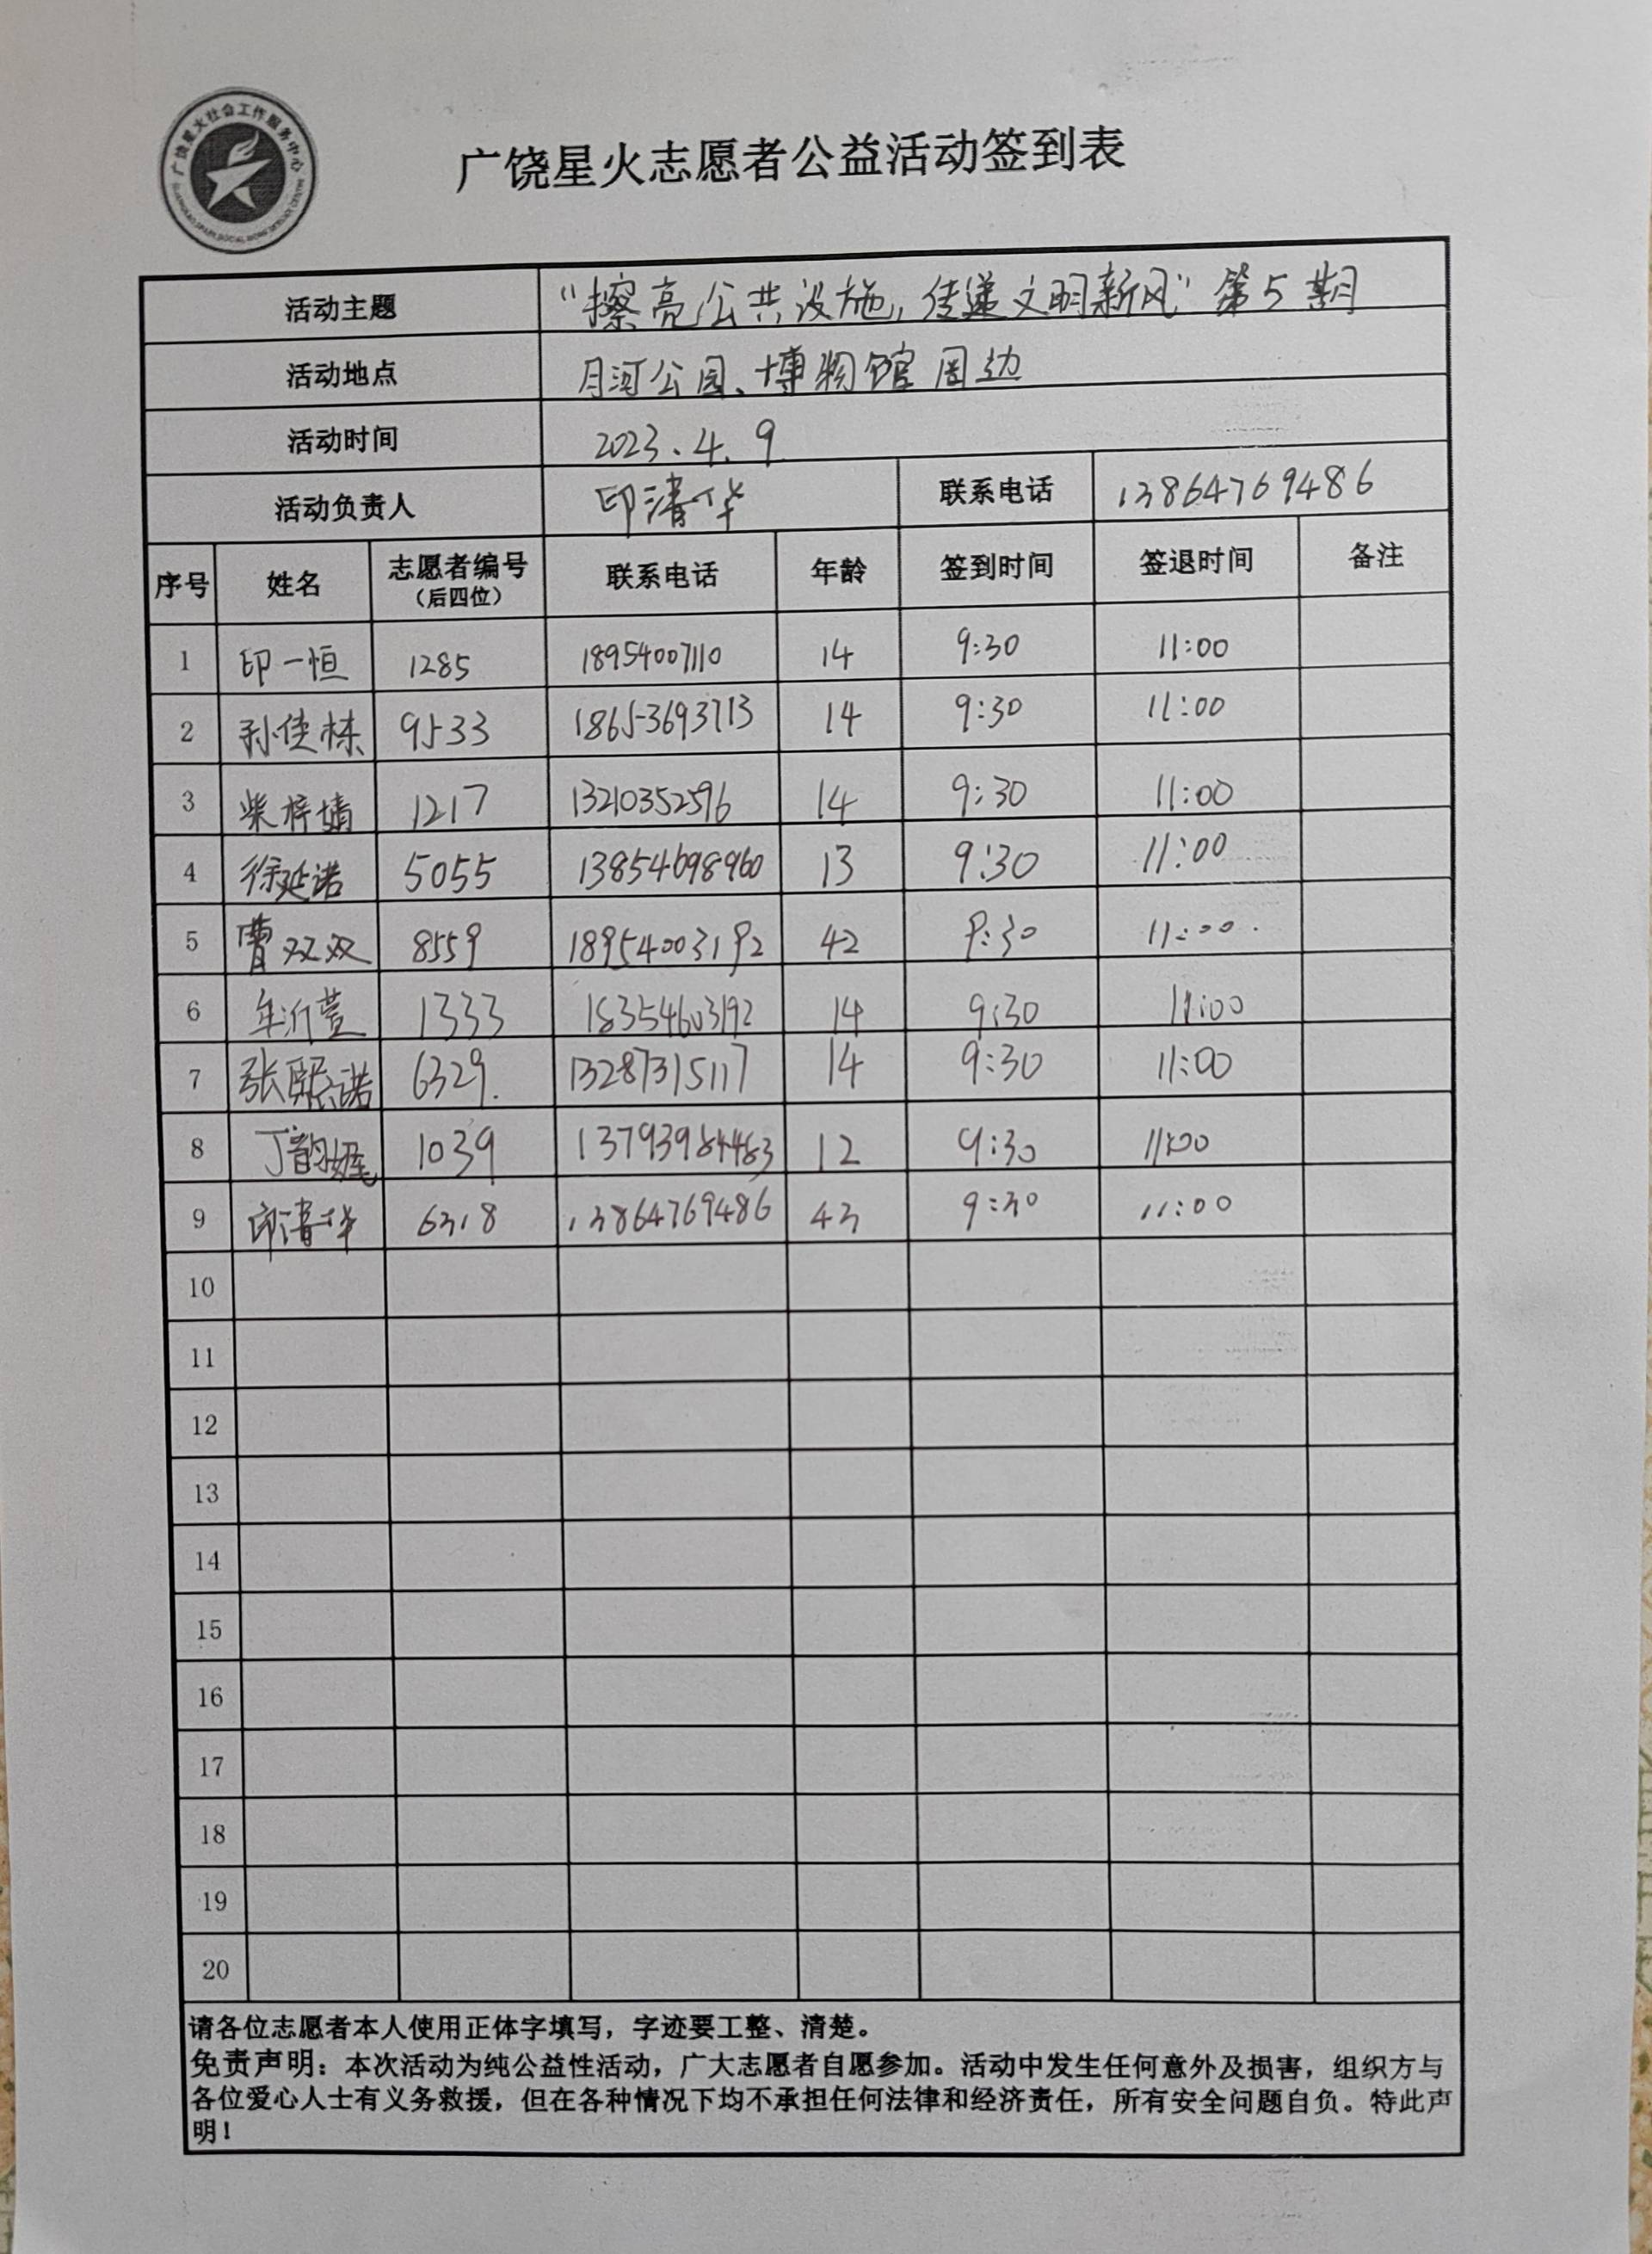 广饶星火社会工作服务中心
广饶星火志愿者公益活动签到表
活动主题 “擦亮公共设施,传递文明新风”第5期
活动地点 月河公园、博物馆周边
活动时间 2023.4.9
活动负责人 印清华 联系电话 13864769486
序号 姓名 志愿者编号（后四位） 联系电话 年龄 签到时间 签退时间 备注
1 印一恒 1285 18954007110 14 9:30 11:00
2 孙佳栋 9533 18653693713 14 9:30 11:00
3 柴梓婧 1217 13210352596 14 9:30 11:00
4 徐延诺 5055 13854698960 13 9:30 11:00
5 曹双双 8559 18954003192 42 9:30 11:00
6 牟沂萱 1333 18354603192 14 9:30 11:00
7 张熙诺 6329. 13287315117 14 9:30 11:00
8 丁韵 1039 13793984483 12 9:30 11:00
9 印清华 6318 13864769486 43 9:30 11:00
10
11
12
13
14
15
16
17
18
19
20
请各位志愿者本人使用正体字填写，字迹要工整、清楚。
免责声明：本次活动为纯公益性活动，广大志愿者自愿参加。活动中发生任何意外及损害，组织方与
各位爱心人士有义务救援，但在各种情况下均不承担任何法律和经济责任，所有安全问题自负。特此声
明！